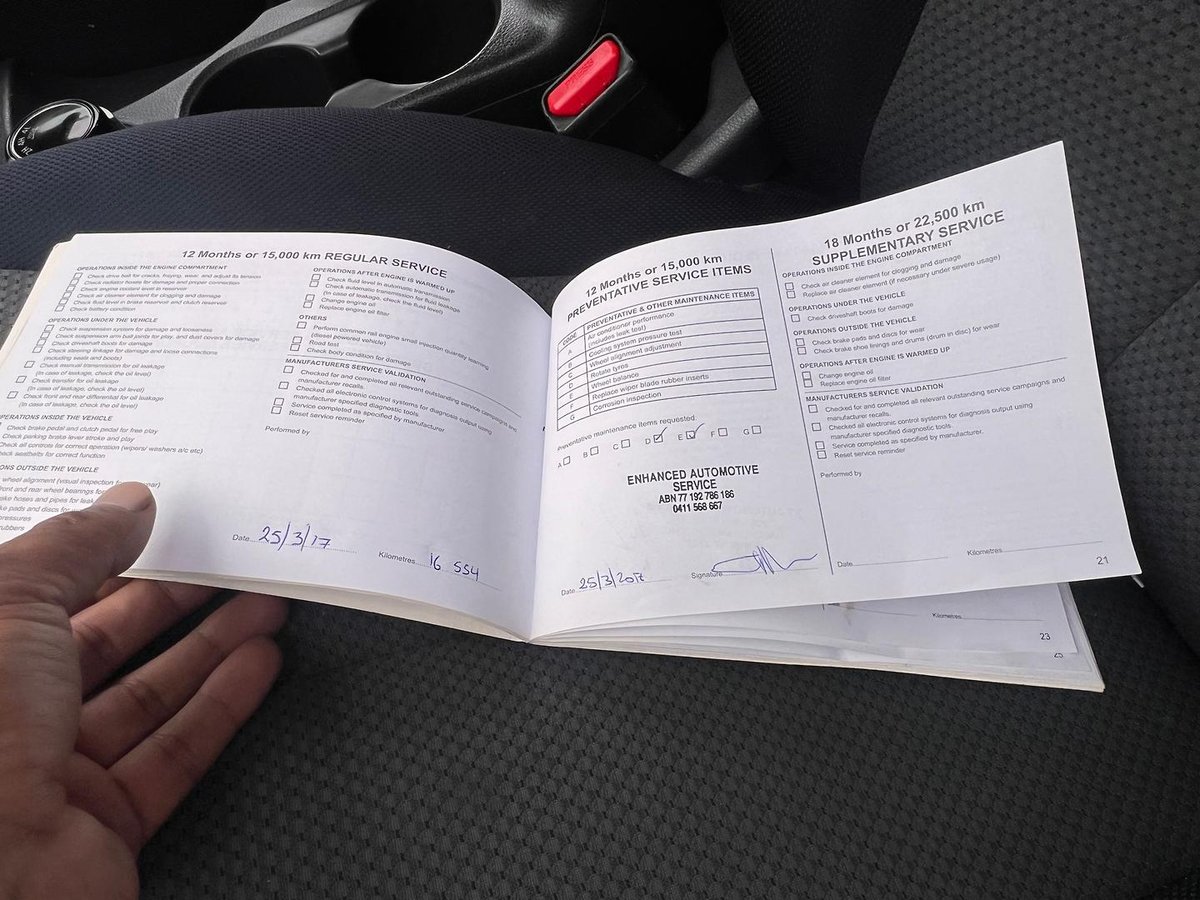 12 Months or 15,000 km REGULAR SERVICE
OPERATIONS INSIDE THE ENGINE COMPARTMENT
Check drive belt for cracks, fraying, wear, and adjust its tension
Check radiator hoses for damage and proper connection
Check engine coolant level in reservoir
Check air cleaner element for clogging and damage
Check fluid level in brake reservoir and clutch reservoir
Check battery condition
OPERATIONS UNDER THE VEHICLE
Check suspension system for damage and looseness
Check suspension arm ball joints for play, and dust covers for damage
Check driveshaft boots for damage
Check steering linkage for damage and loose connections
(including seals and boots)
Check manual transmission for oil leakage
(In case of leakage, check the oil level)
Check transfer for oil leakage
(In case of leakage, check the oil level)
Check front and rear differential for oil leakage
(In case of leakage, check the oil level)
OPERATIONS INSIDE THE VEHICLE
Check brake pedal and clutch pedal for free play
Check parking brake lever stroke and play
Check all controls for correct operation (wipers/ washers a/c etc)
Check seatbelts for correct function
ONS OUTSIDE THE VEHICLE
wheel alignment (visual inspection for
front and rear wheel bearings for
ake hoses and pipes for leak
ake pads and discs for
pressures
rubbers
OPERATIONS AFTER ENGINE IS WARMED UP
Check fluid level in automatic transmission
Check automatic transmission for fluid leakage
(In case of leakage, check the fluid level)
Change engine oil
Replace engine oil filter
OTHERS
Perform common rail engine small injection quantity learning
(diesel powered vehicle)
Road test
Check body condition for damage
MANUFACTURERS SERVICE VALIDATION
Checked for and completed all relevant outstanding service campaigns and
manufacturer recalls.
Checked all electronic control systems for diagnosis output using
manufacturer specified diagnostic tools.
Service completed as specified by manufacturer.
Reset service reminder
Performed by
Date 25/3/17 Kilometres 16 554
12 Months or 15,000 km
PREVENTATIVE SERVICE ITEMS
CODE PREVENTATIVE & OTHER MAINTENANCE ITEMS
A Air conditioner performance
(includes leak test)
B Cooling system pressure test
C Wheel alignment adjustment
D Rotate tyres
E Wheel balance
F Replace wiper blade rubber inserts
G Corrosion inspection
Preventative maintenance items requested:
A B C D E F G
ENHANCED AUTOMOTIVE
SERVICE
ABN 77 192 786 186
0411 568 667
Date 25/3/2017 Signature
18 Months or 22,500 km
SUPPLEMENTARY SERVICE
OPERATIONS INSIDE THE ENGINE COMPARTMENT
Check air cleaner element for clogging and damage
Replace air cleaner element (if necessary under severe usage)
OPERATIONS UNDER THE VEHICLE
Check driveshaft boots for damage
OPERATIONS OUTSIDE THE VEHICLE
Check brake pads and discs for wear
Check brake shoe linings and drums (drum in disc) for wear
OPERATIONS AFTER ENGINE IS WARMED UP
Change engine oil
Replace engine oil filter
MANUFACTURERS SERVICE VALIDATION
Checked for and completed all relevant outstanding service campaigns and
manufacturer recalls.
Checked all electronic control systems for diagnosis output using
manufacturer specified diagnostic tools.
Service completed as specified by manufacturer.
Reset service reminder
Performed by
Date Kilometres
21
Kilometres
23
25
PRESS